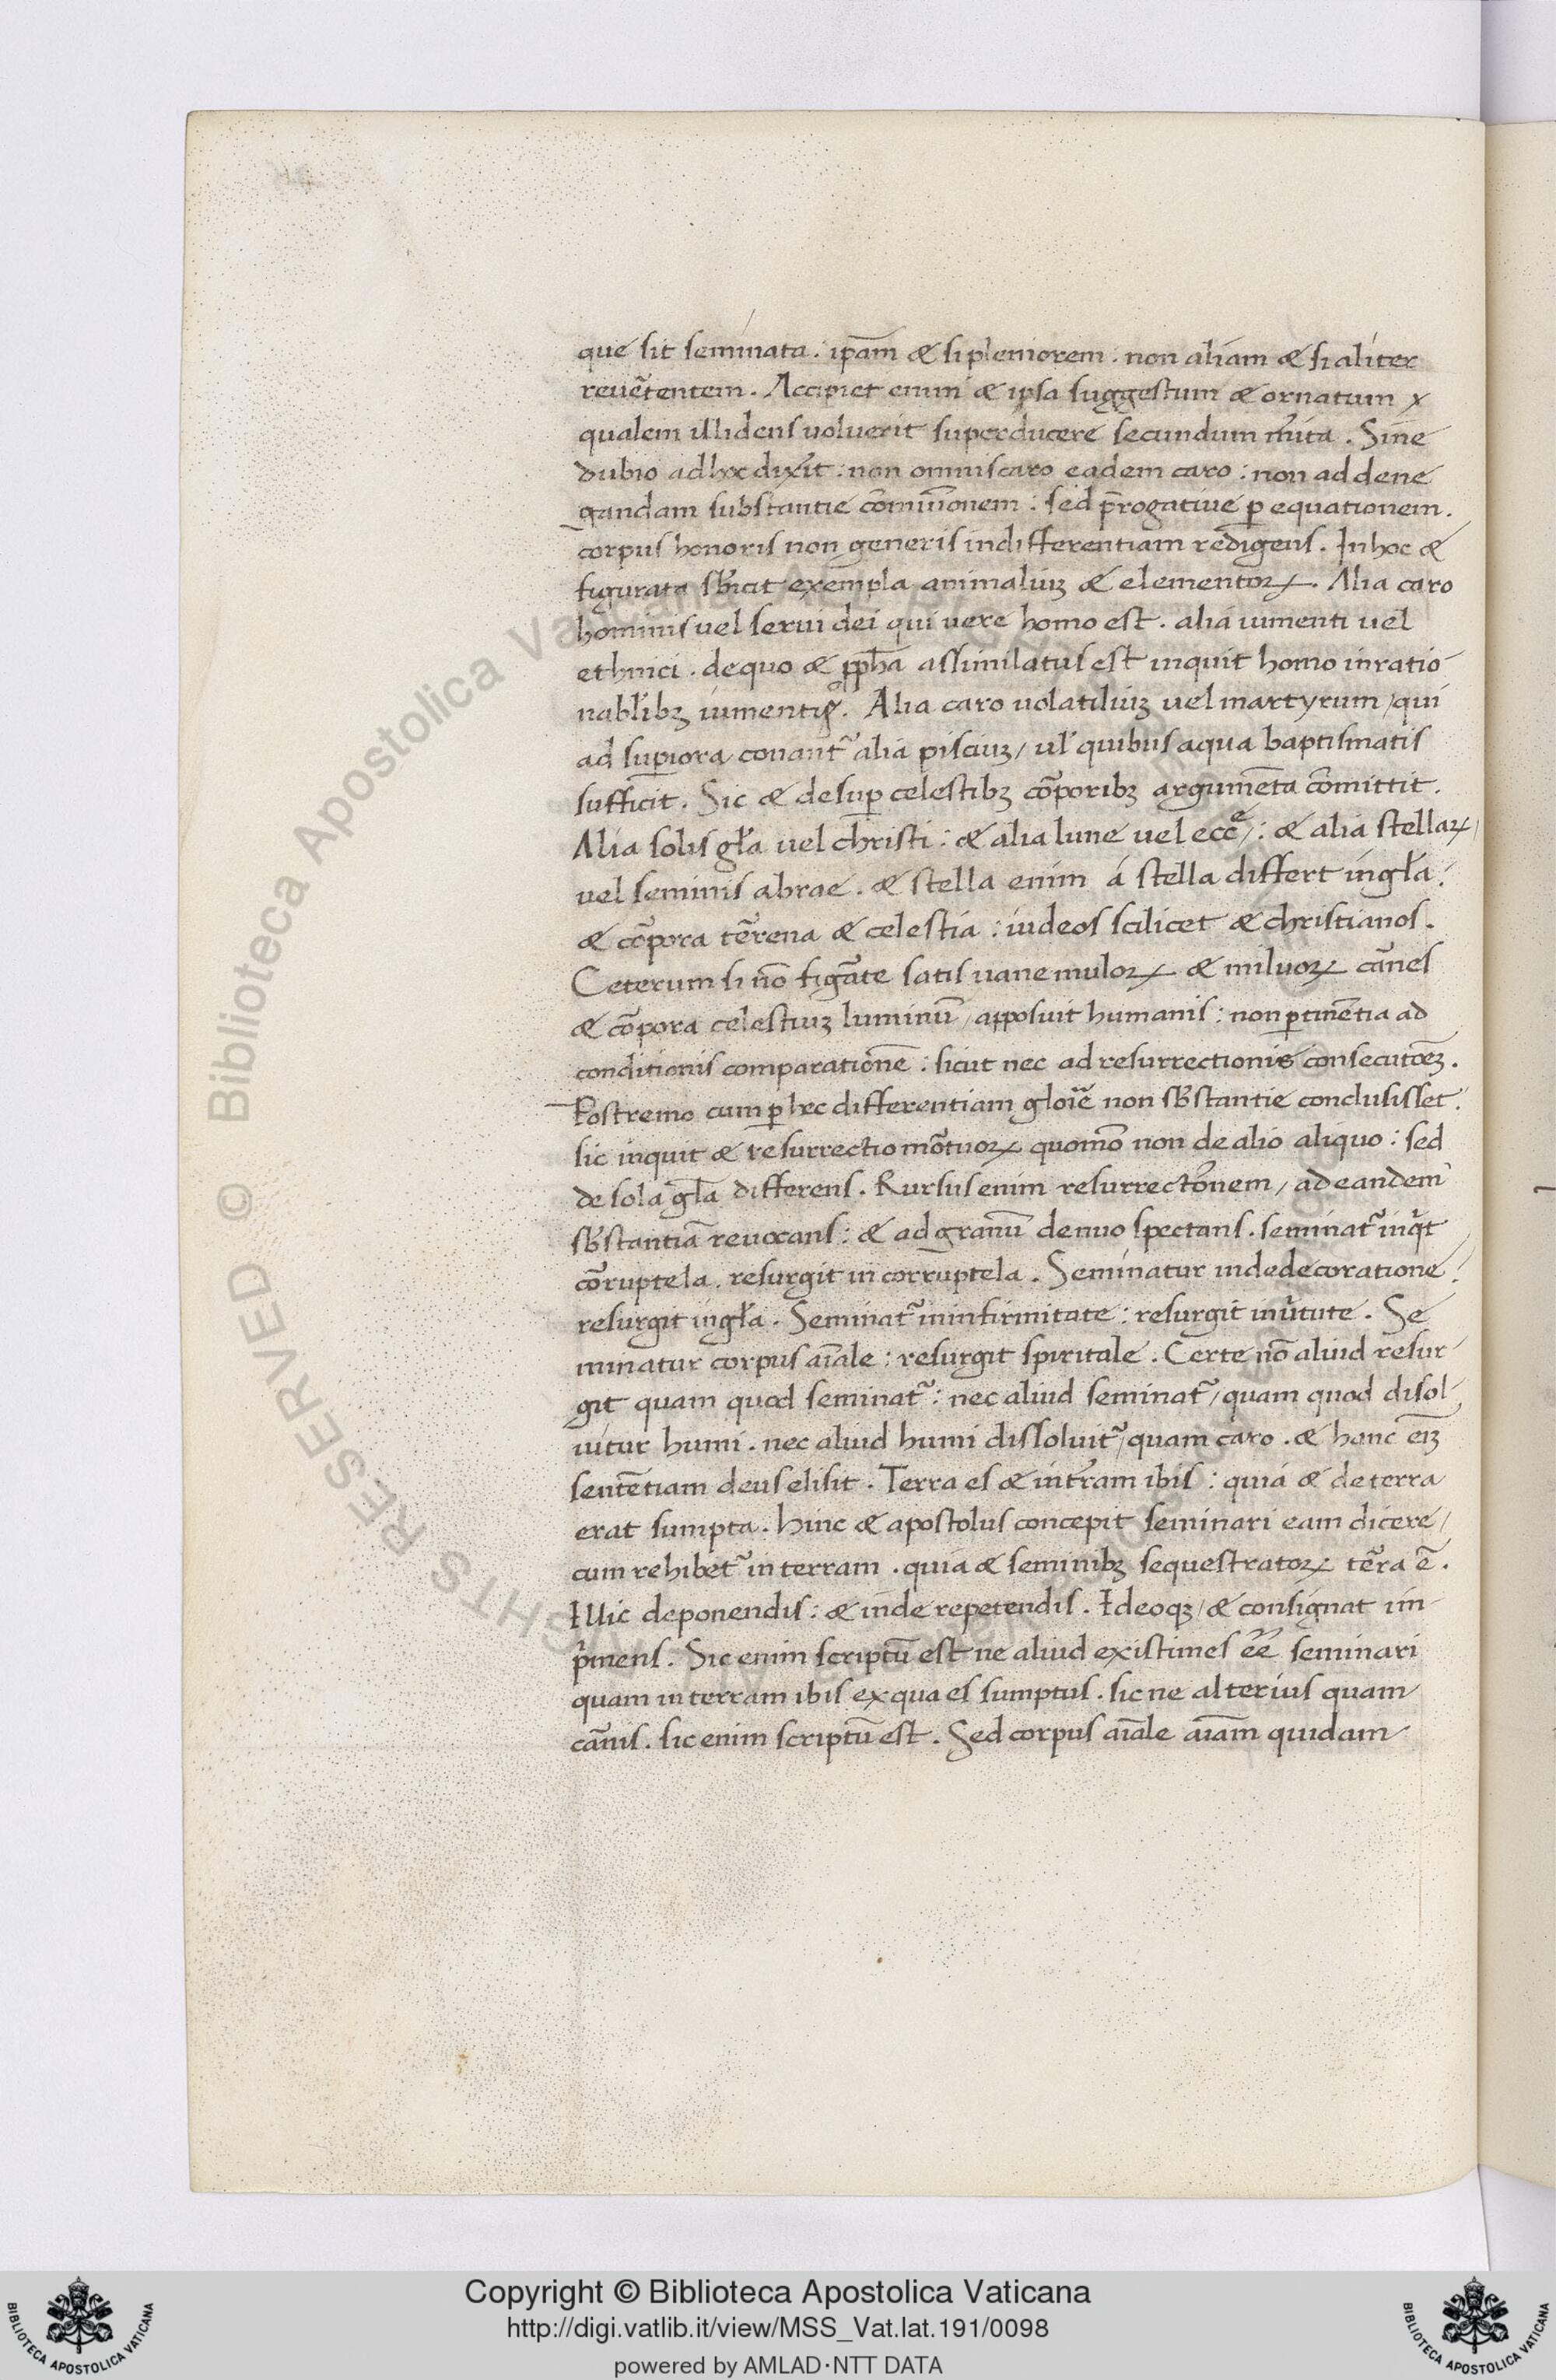 que sit seminata. ip̄am & si pleniorem. non aliam & si aliter
reuētentem. Accipiet enim & ipsa suggestum & ornatum
qualem illi dens uoluerit superducere secundum m̄ita. Sine
dubio ad hoc dix̄it: non omnis caro eadem caro: non ad dene
gandam substantie cōmuīonem: sed p̄rogatiue p̱ equationem.
corpus honoris non generis in differentiam redigens. In hoc &
figurata sb̄icit exempla animaliuꝫ & elementoꝝ. Alia caro
hominis uel serui dei qui uere homo est. alia iumenti uel
ethnici. de quo & ꝓph̄a assimilatus est inquit homo inratio
nabl̓ibꝫ iumentis. Alia caro uolatiliuꝫ uel martyrum / qui
ad suꝑiora conant᷑ alia pisciuꝫ / ul̓ quibus aqua baptismatis
sufficit. Sic & de suꝑ celestibꝫ cōporibꝫ argumēta cōmittit.
Alia solis gl̓a uel christi: & alia lune uel ecc̄e /: & alia stellaꝝ /
uel seminis abrae. & stella enim á stella differt in gl̓a:
& cōpora tērena & celestia: iudeos scilicet & christianos.
Ceterum si nō figāte satis uane muloꝝ & miluoꝝ cānes
& cōpora celestiuꝫ luminū / apposuit humanis: non ꝑtinētia ad
conditionis comparationē: sicut nec ad resurrectionis consecutōeꝫ.
Postremo cum ꝑ hec differentiam gloīe non sb̄stantie conclusisset.
sic inquit & resurrectio mōtuoꝝ quomō non de alio aliquo: sed
de sola gl̄a differens. Rursus enim resurrectōnem / ad eandem
sb̄stantiā reuocans: & ad granū denuo spectans. seminat᷑ inq̄t
cōruptela. resurgit in corruptela. Seminatur in dedecoratione:
resurgit in gl̓a. Seminat᷑ in infirmitate: resurgit in u̓tute. Se
minatur corpus aīale: resurgit spiritale. Certe nō aliud resur
git quam quod seminat᷑: nec aliud seminat᷑ / quam quod disol
uitur humi. nec aliud humi dissoluit᷑ / quam caro. & hanc eīꝫ
sentētiam deus elisit. Terra es & in t̓ram ibis: quia & de terra
erat sumpta. hinc & apostolus concepit seminari eam dicere /
cum rehibet᷑ in terram. quia & seminibꝫ sequestratoꝝ tēra ē.
Illic deponendis: & inde repetendis. Ideoqꝫ / & consignat im
p̓mens. Sic enim scriptū est ne aliud existimes eē seminari
quam in terram ibis ex qua es sumptus. sic ne alterius quam
cānis. sic enim scriptū est. Sed corpus aīale aīam quidam
Copyright © Biblioteca Apostolica Vaticana
http://digi.vatlib.it/view/MSS_Vat.lat.191/0098
powered by AMLAD·NTT DATA
BIBLIOTECA APOSTOLICA VATICANA
BIBLIOTECA APOSTOLICA VATICANA